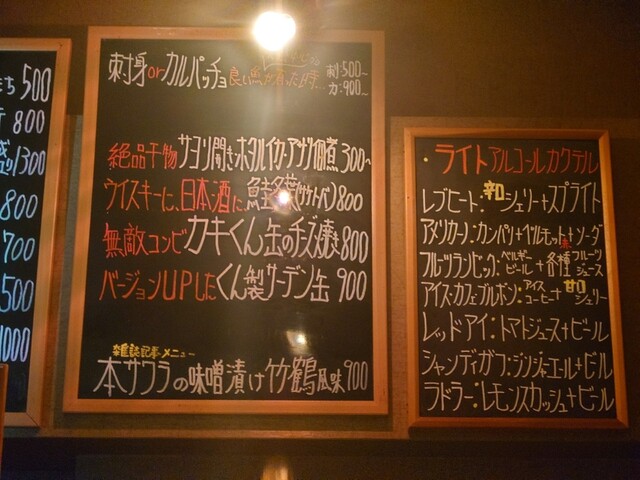 500
800
1300
800
700
500
1000
刺身orカルパッチョ 良い魚が入った時… 刺:500~
カ:900~
絶品干物サヨリ開き・ホタルイカ・アサリ佃煮300~
ウイスキーに、日本酒に、鮭冬葉(サケトバ)800
無敵コンビカキくん缶のチーズ焼き800
バージョンUPしたくん製サーデン缶 900
雑誌記事メニュー
本サワラの味噌漬け竹鶴風味900
・ライトアルコールカクテル
レブヒート:辛口シェリー+スプライト
アメリカーノ:カンパリ+ベルモット赤+ソーダ
フルーツランビック:ベルギービール+各種フルーツジュース
アイス・カフェ・ブルボン:アイスコーヒー+甘口シェリー
レッドアイ:トマトジュース+ビール
シャンディガフ:ジンジャーエール+ビール
ラドラー:レモンスカッシュ+ビール